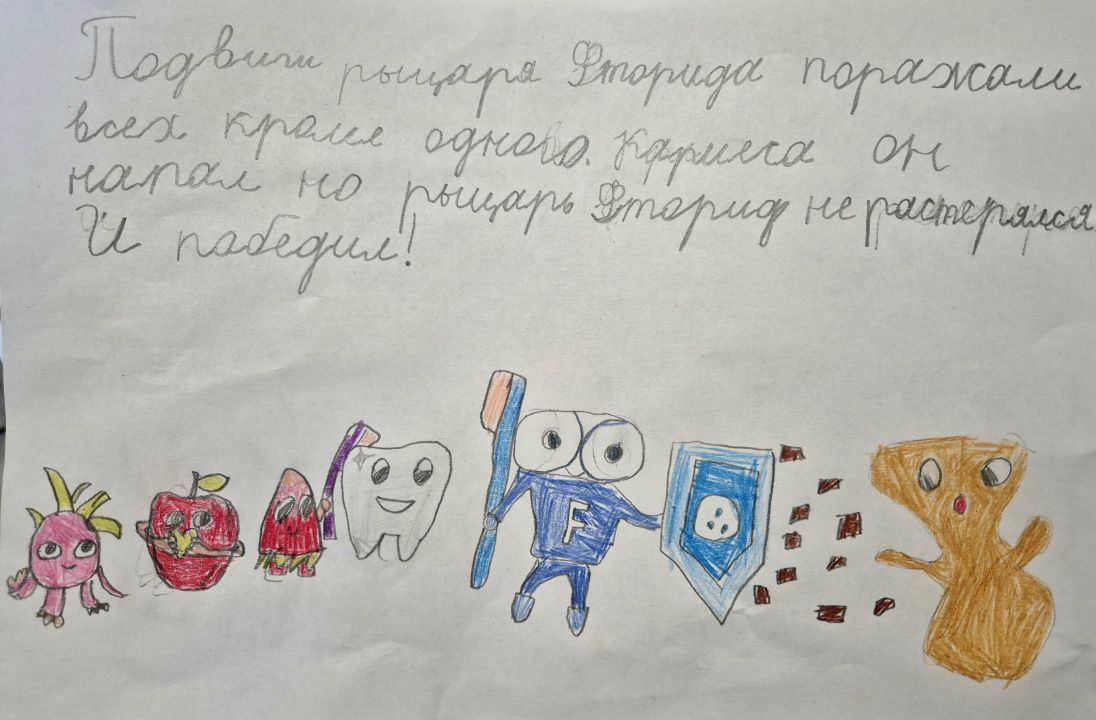 Подвиги рыцаря Фторида поражали
всех кроме одного. Кариеса он
напал но рыцарь Фторид не растерялся
И победил!
F